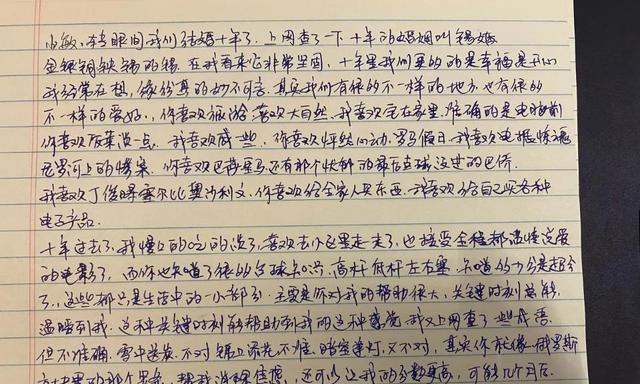 小敏，转眼间我们结婚十年了，上网查了一下十年的婚姻叫锡婚
金银铜铁锡的锡，在我看来它非常坚固，十年里我们更多的是幸福是开心
我经常在想，缘份真的妙不可言，其实我们有很多不一样的地方，也有很多
不一样的爱好，你喜欢旅游 喜欢大自然，我喜欢宅在家里，准确的是电脑前
你喜欢饭菜淡一点，我喜欢咸一些，你喜欢怦然心动，罗马假日，我喜欢电锯惊魂
尼罗河上的惨案，你喜欢巴萨 还有那个快船的 巴
我喜欢丁俊晖塞尔比奥沙利文，你喜欢给全家人买东西，我喜欢给自己买各种
电子产品。
十年过去了，我慢慢的吃的淡了，喜欢去小区里走一走了，也接受全程都温情没爱
的电影了，而你也知道了很多台球知识，高杆低杆左右塞，知道 147分是超分
了，这些都只是生活中的一小部分，主要是你对我的帮助很大，关键时刻总能
温暖到我，这种关键时刻能帮助到我的这种感觉，我又上网查了一些成语
但不准确，雪中送炭，不对 锦上添花，不准，暗室逢灯，又不对，其实你就像俄罗斯
方块里的那个 ，帮我消除 ，还可以让我的分数更高，可能几个月后